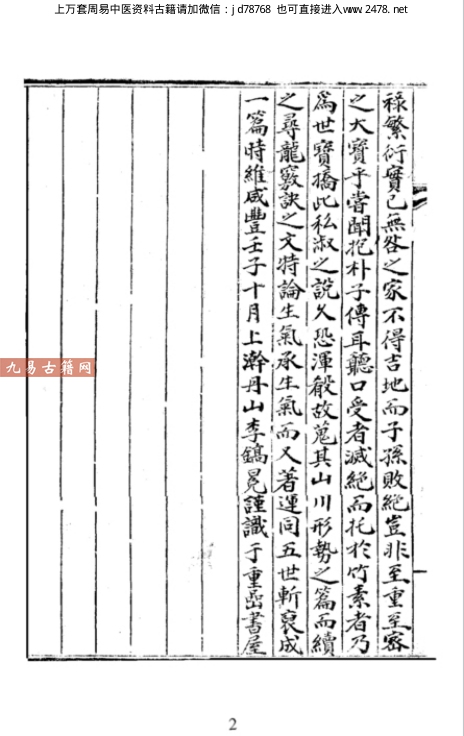 上万套周易中医资料古籍请加微信：jd78768 也可直接进入www.2478.net
祿繁衍實已無咎之家不得吉地而子孫敗絕豈非至重至密
之大寶乎嘗聞抱朴子傳耳聽口受者滅絕而托於竹素者乃
爲世寶撟此私淑之說久恐渾殽故蒐其山川形勢之篇而續
之尋龍竅訣之文特論生氣承生氣而又著運同五世斬裒成
一篇時維咸豐壬子十月上澣丹山李鎬冕謹識于重嵒書屋
九易古籍网
2